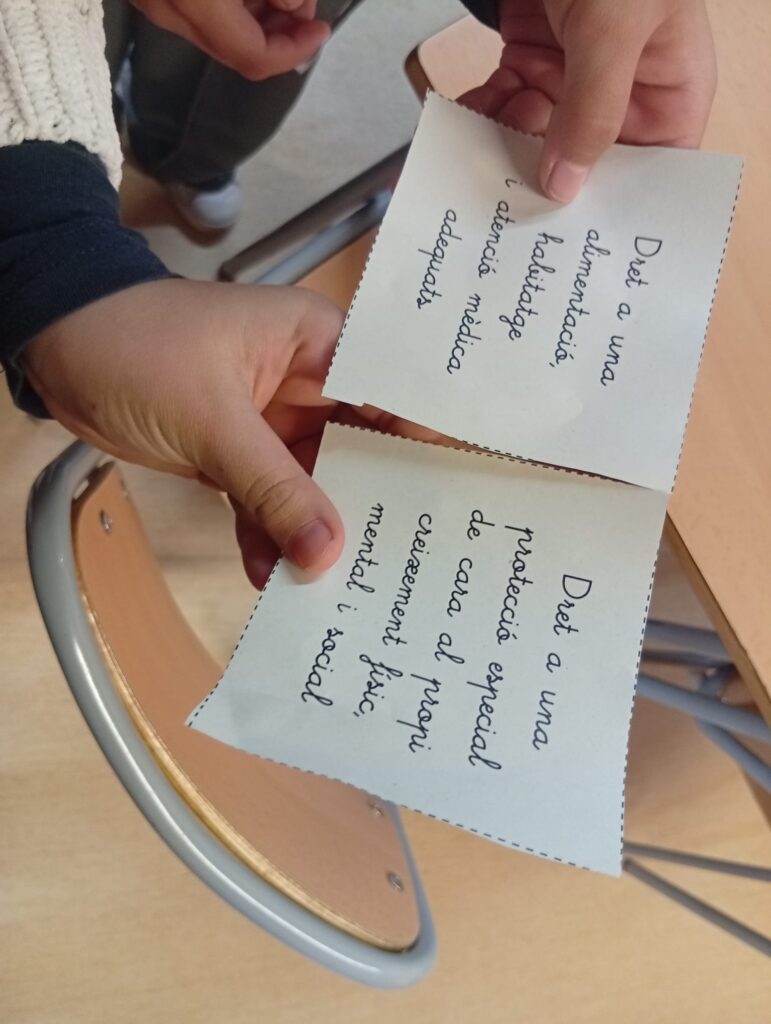 Dret a una
alimentació,
habitatge
i atenció mèdica
adequats
Dret a una
protecció especial
de cara al propi
creixement físic,
mental i social